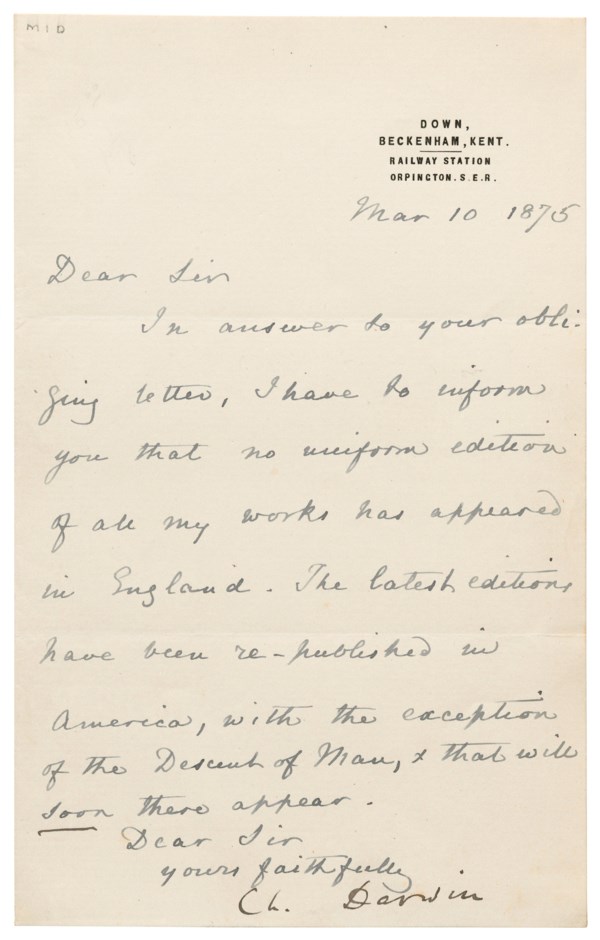 MID
DOWN,
BECKENHAM, KENT.
RAILWAY STATION
ORPINGTON. S.E.R.
Mar 10 1875
Dear Sir
In answer to your obli-
ging letter, I have to inform
you that no uniform edition
of all my works has appeared
in England. The latest editions
have been re-published in
America, with the exception
of the Descent of Man, & that will
soon there appear.
Dear Sir
yours faithfully
Ch. Darwin